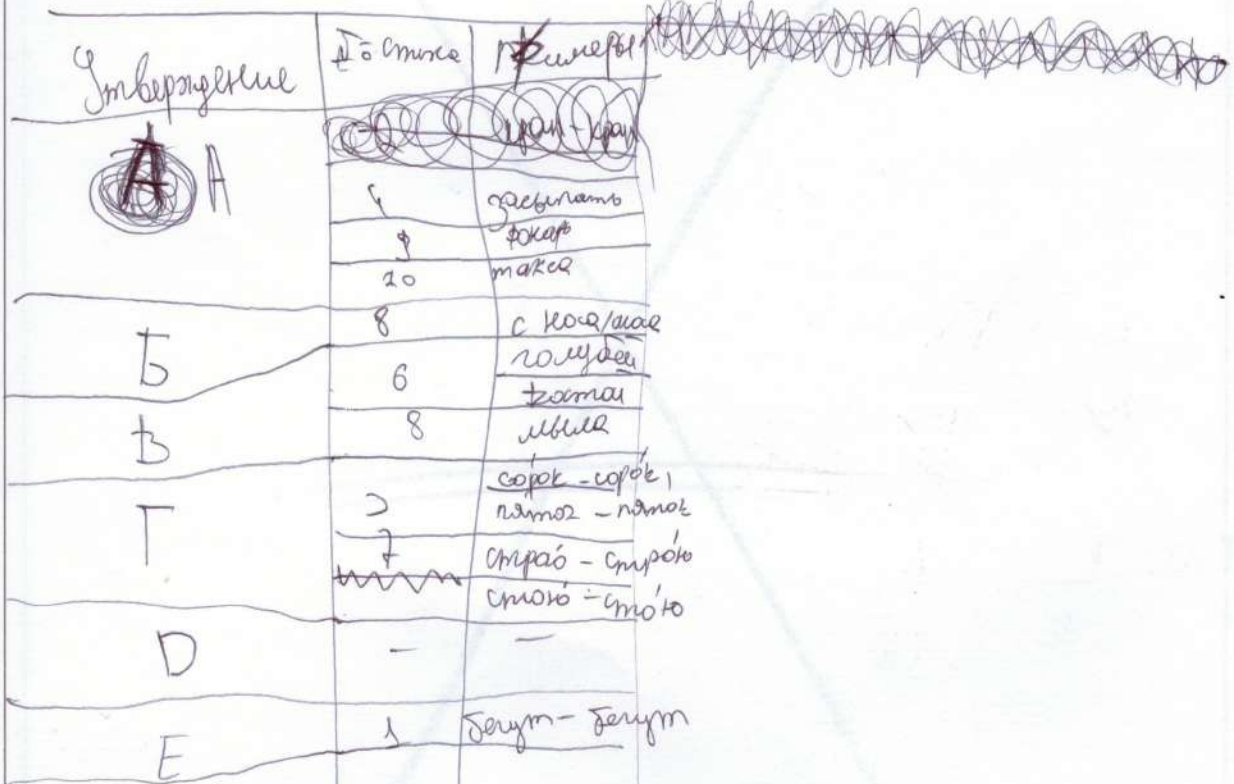 Утверждение № стиха Примеры
А
4 засыпать
9 фокар
10 такса
Б 8 с носа/
6 голубей
костой
В 8 мыла
Г сорок - сорок,
пяток - пяток
7 страо - строю
стою - стою
D - -
Е 1 бегут - бегут